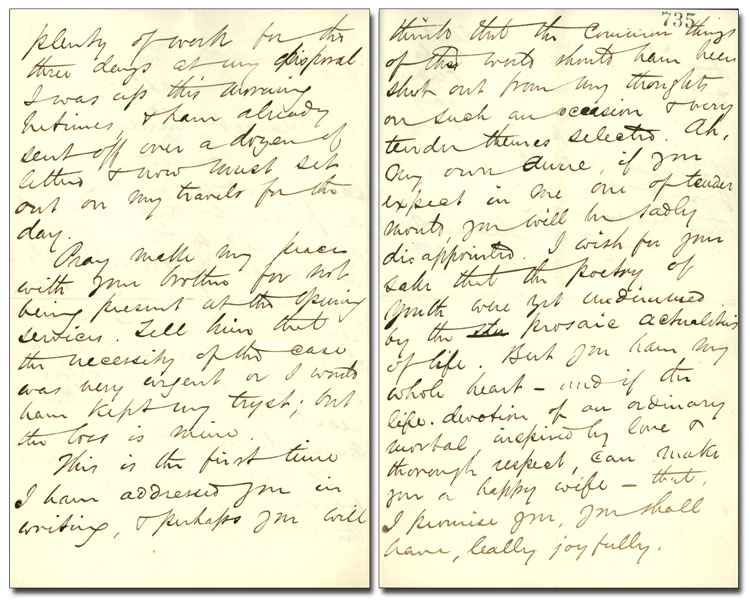 plenty of work for the
three days at my disposal.
I was up this morning
betimes, & have already
sent off over a dozen of
letters & now must set
out on my travels for the
day.
Pray make my peace
with your brother for not
being present at the opening
services. Tell him that
the necessity of the case
was very urgent or I would
have kept my tryst; but
the loss is mine.
This is the first time
I have addressed you in
writing, & perhaps you will
735
think that the common things
of this world should have been
shut out from my thoughts
on such an occasion & very
tender themes selected. Ah,
my own dearie, if you
expect in me one of tender
words you will be sadly
disappointed. I wish for your
sake that the poetry of
youth were yet undimmed
by the prosaic actualities
of life. But you have my
whole heart – and if the
life-devotion of an ordinary
mortal, inspired by love &
thorough respect, can make
you a happy wife – that,
I promise you, you shall
have, leally joyfully.